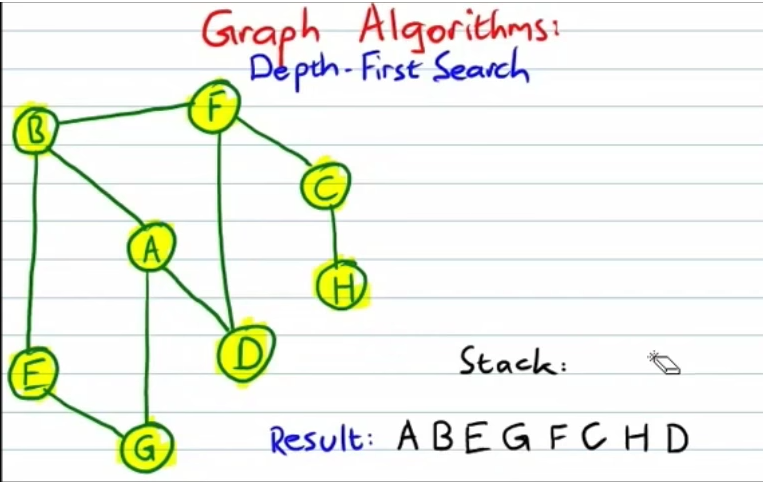 Graph Algorithms:
Depth-First Search
F
B
C
A
H
D
E
G
Stack:
Result: A B E G F C H D